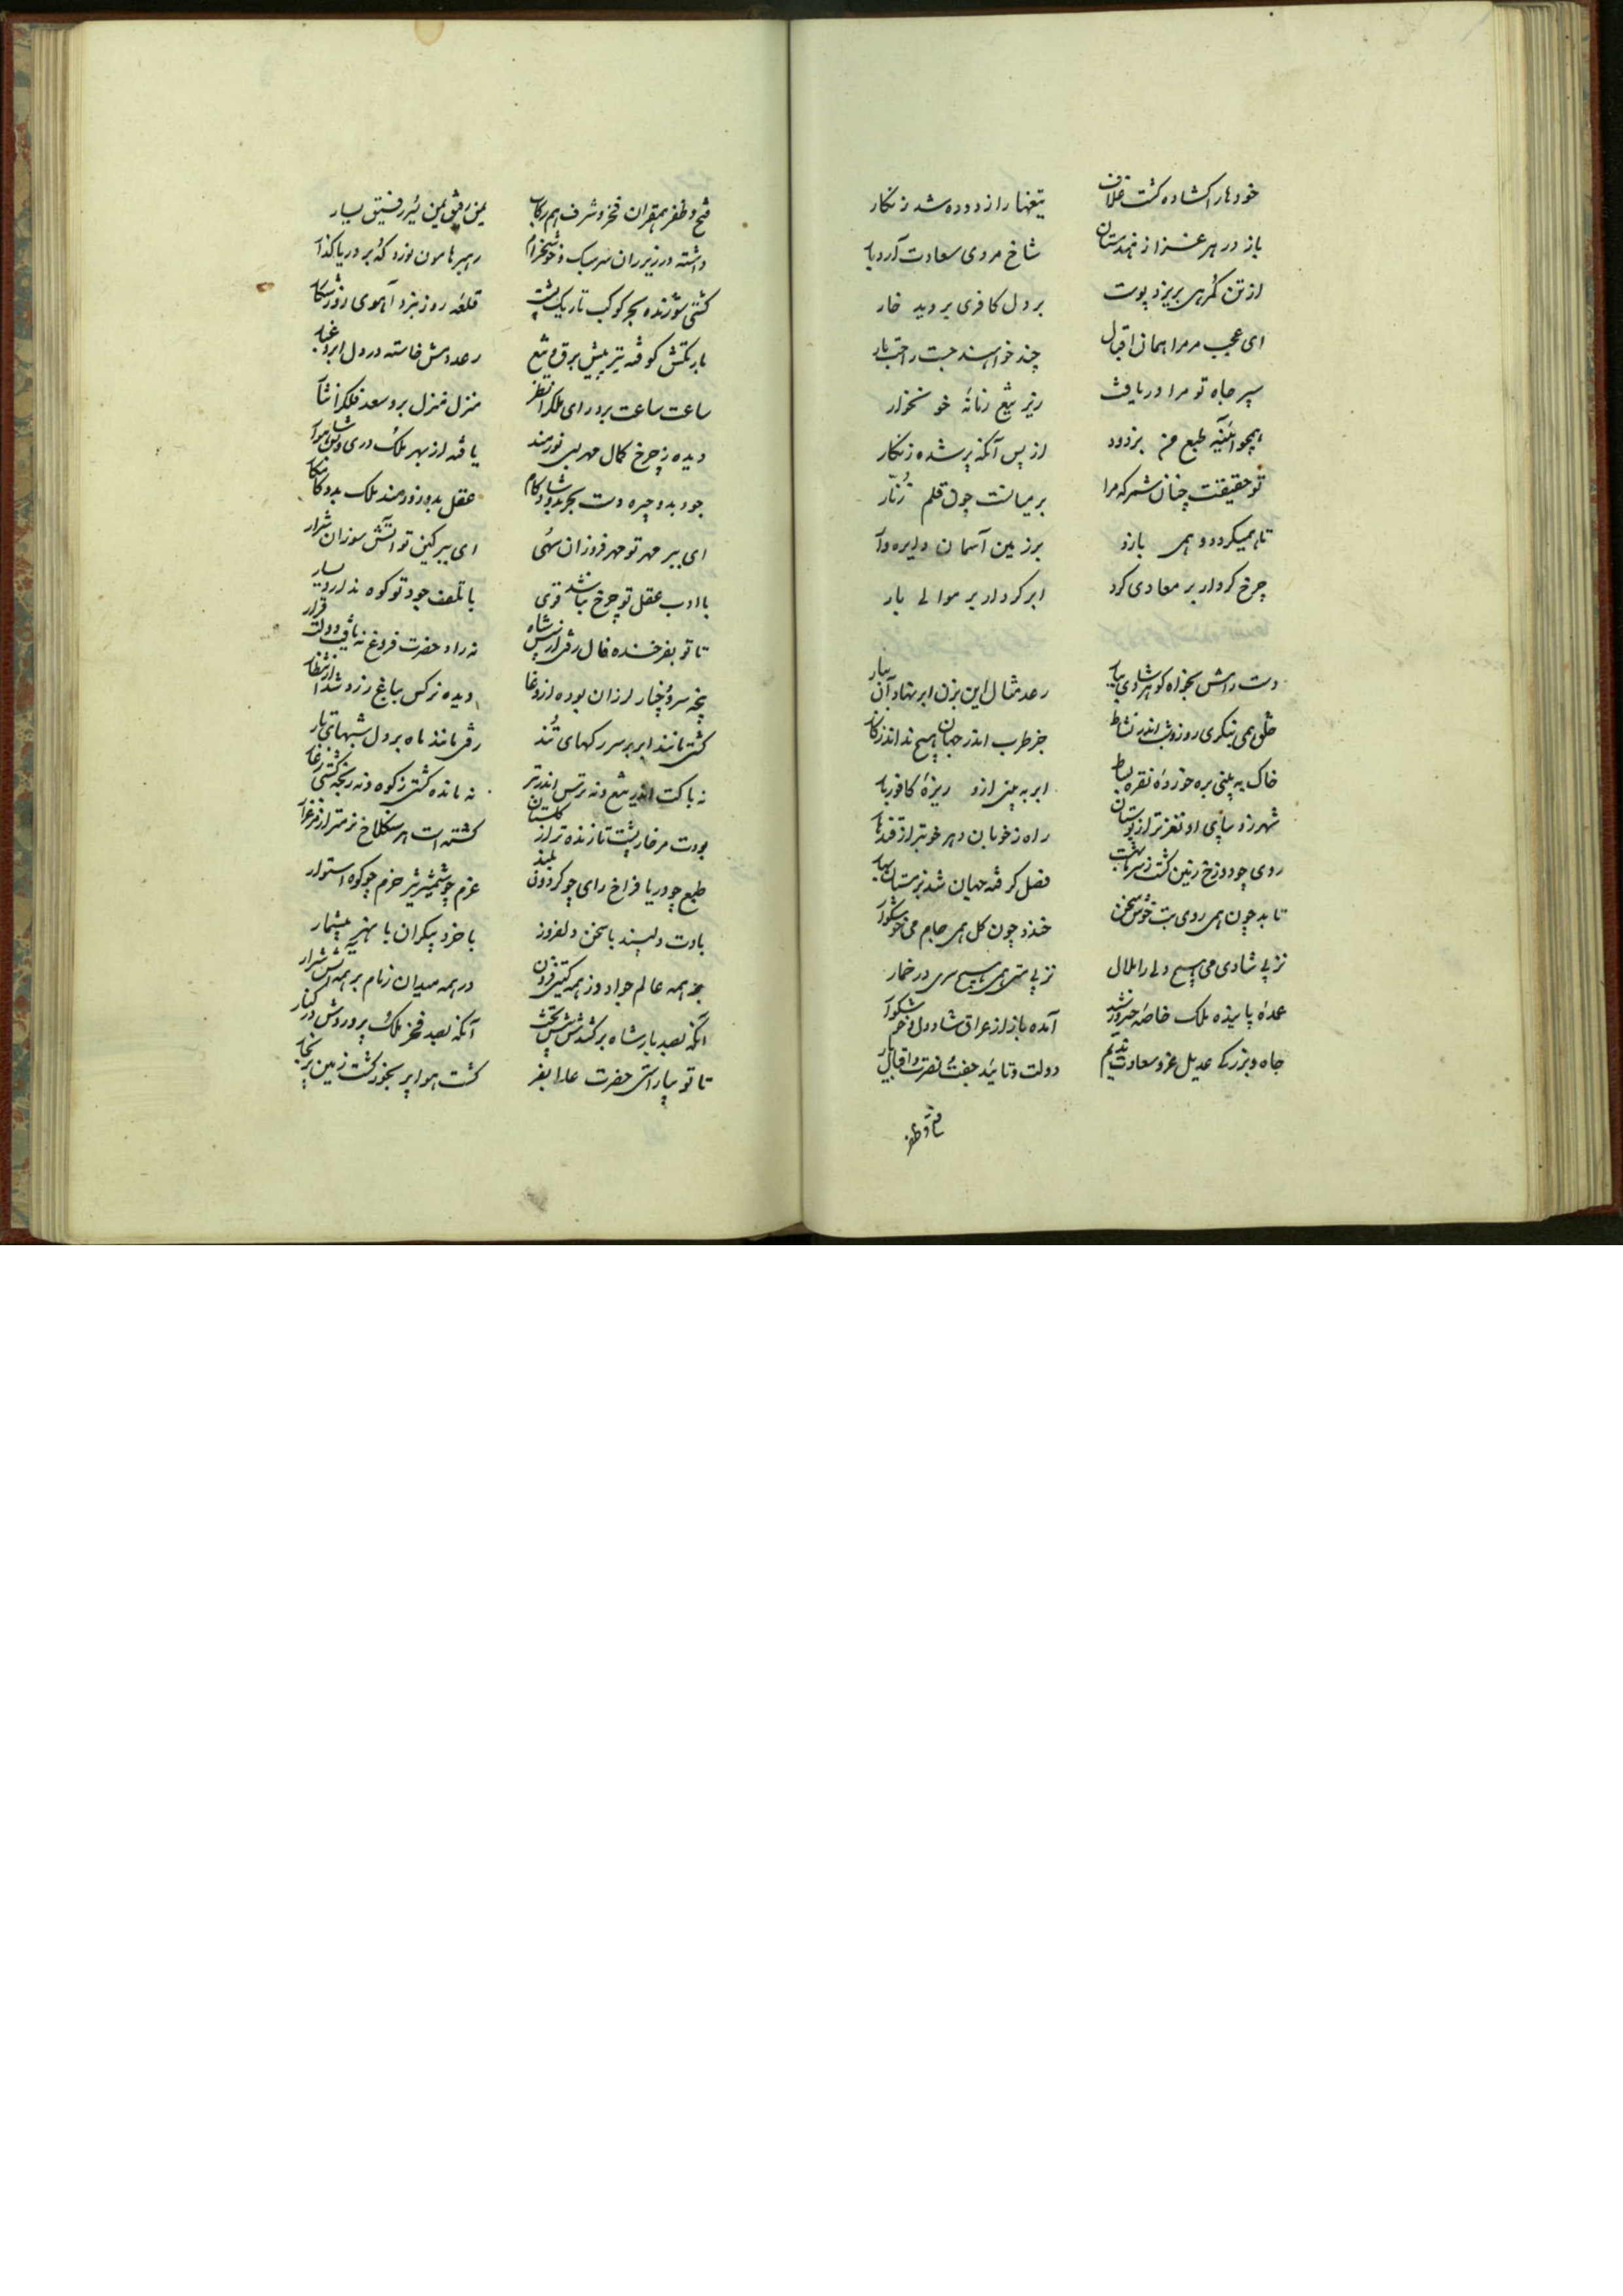 خودها را کشاده کشت غلاف
تیغها را زدوده شد زنکار
باز در هر غزا ز هندستان
شاخ مردی سعادت آرد بار
از تن کمرهی بریزد پوست
بر دل کافری بروید خار
ای عجب مر مرا همان اقبال
چند خواهند جست راحت بار
سپر جاه تو مرا دریافت
زیر تیغ زمانهٔ خونخوار
همچو آئینه طبع من بزدود
از پس آنکه پر شده زنکار
تو حقیقت چنان شمر که مرا
بر میانست چون قلم زنّار
تا همیکردد و همی بارد
بر زمین آسمان دایره وار
چرخ کردار بر معادی کرد
ابر کردار بر موالی بار
دست رامش بخواه کوهر شادی بیار
رعد مثال این بزن ابر نهاد آن بیار
خلق همی بنکری روز و شب اندر نشاط
جز طرب اندر جهان هیچ ندارند کار
خاک به بینی بره خورده نقره بساط
ابر به بینی ازو ریزهٔ کافور بار
شهر زد بپای او نغزتر از بوستان
راه ز خوبان دهر خوبتر از قندهار
روی چو دوزخ زمین کشت ز سر بهشت
فصل کرفته جهان شد بزمستان بهار
تابد چون همی روی بت خوش سخن
خندد چون کل همی جام می خوشکوار
نز پی شادی می هیچ دلی را ملال
نز پی مستی همی هیچ سری در خمار
عمدهٔ پاینده ملک خاصه خسرو رشید
آمده باز از عراق شاد دل و شکرار
جاه و بزرکی عدیل عز و سعادت ندیم
دولت و تائید جفت نصرت و اقبال یار
فتح و ظفر
فتح و ظفر همقران فخر و شرف هم رکاب
یمن رفیق یمین یسر رفیق یسار
داشته در زیر ران سرسبک و خوشخرام
رهبر هامون نورد که بر دریا کذار
کشتی سوزنده بحر کوکب تاریک شب
قلعه روز نبرد آهوی روز شکار
بارتکش کوفته تیز پیش برق و تیغ
رعد دمش خاسته در دل ابر و غبار
ساعت ساعت برو رای ملک را نظر
منزل منزل برو سعد فلک را نثار
دیده ز چرخ کمال مهر بسی نورمند
یافته از بهر ملک دری و شاهوار
جود بدو چیره دست بحر بدو شادکام
عقل بدو زورمند ملک بدو کامکار
ای ببر مهر تو مهر فروزان سهی
ای ببر کین تو آتش سوزان شرار
با ادب عقل تو چرخ نباشد قوی
با تلف جود تو کوه ندارد یسار
تا تو بفرخنده فال رفتی از پیش شاه
نه راد حضرت فروغ نه یافت دولت قرار
پنجه سرو چنار لرزان بوده از دعا
دیده نرکس بباغ زرد شد از انتظار
کشتی مانند ابر بر سر رکهای تند
رفتی مانند ماه بر دل شبهای تار
نه باکت اندر تیغ و نه ترس اندر تبر
نه مانده کشتی ز کوه و نه رنجه کشتی ز غار
بودت مر خار پشت تازنده تر از کلستان
کشتت هر سنکلاخ نرمتر از مرغزار
طبع چو دریا فراخ رای چو کردون بلند
عزم چو شمشیر تیز حزم چو کوه استوار
یادت دلپسند با سخن دلفروز
با خرد بیکران با هنر بیشمار
بر همه عالم جواد وز همه کیتی فزون
در همه میدان زنام بر همه آتش شرار
آنکه بصد بار شاه برکشدش پیش تخت
آنکه بصد فخر ملک پروردش در کنار
تا تو بیاراستی حضرت عالی بفر
کشت هوا پر بخور کشت زمین پر نکار